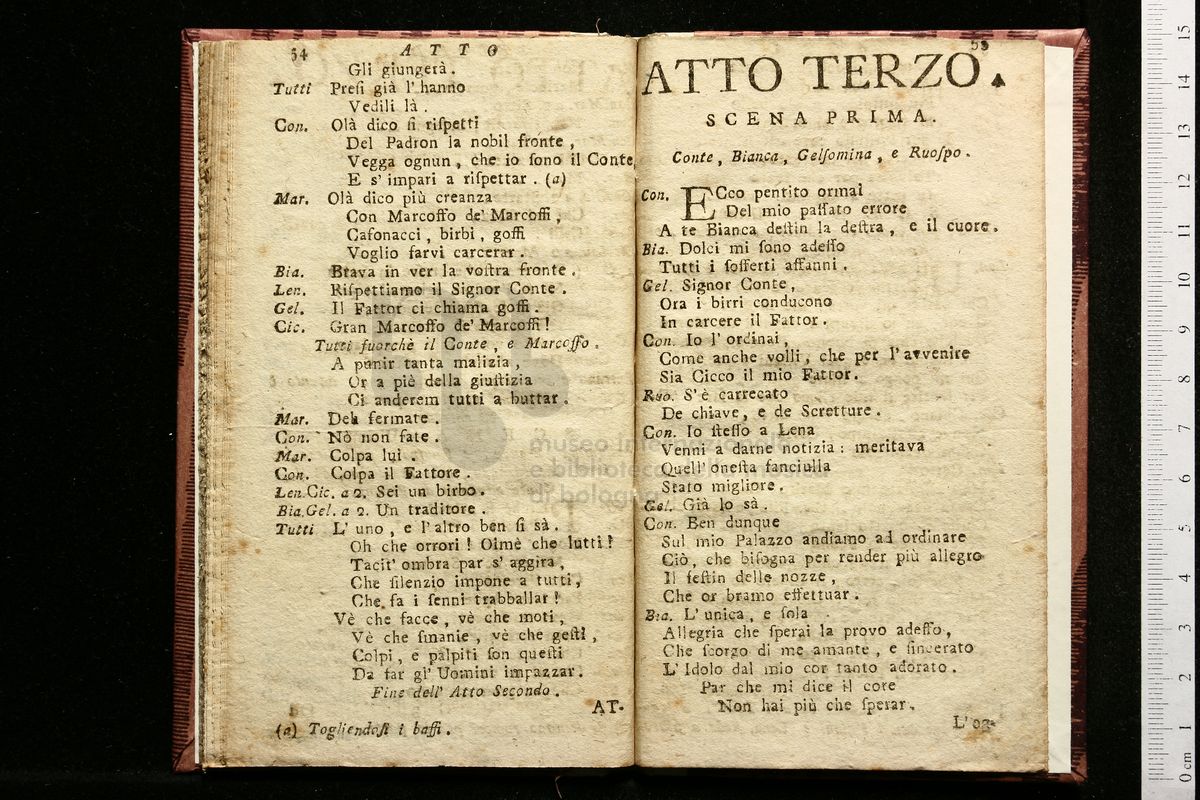 54 ATTO
Gli giungerà.
Tutti Preſi già l'hanno
Vedili là.
Con. Olà dico ſi riſpetti
Del Padron la nobil fronte,
Vegga ognun, che io ſono il Conte
E s'impari a riſpettar. (a)
Mar. Olà dico più creanza
Con Marcoffo de' Marcoffi,
Cafonacci, birbi, goffi
Voglio farvi carcerar.
Bia. Brava in ver la voſtra fronte.
Len. Riſpettiamo il Signor Conte.
Gel. Il Fattor ci chiama goffi.
Cic. Gran Marcoffo de' Marcoffi!
Tutti fuorchè il Conte, e Marcoffo.
A punir tanta malizia,
Or a piè della giuſtizia
Ci anderem tutti a buttar.
Mar. Deh fermate.
Con. Nò non fate.
Mar. Colpa lui.
Con. Colpa il Fattore.
Len.Cic. a 2. Sei un birbo.
Bia.Gel. a 2. Un traditore.
Tutti L'uno, e l'altro ben ſi sà.
Oh che orrori! Oimè che lutti!
Tacit' ombra par s'aggira,
Che ſilenzio impone a tutti,
Che fa i ſenni trabballar!
Vè che facce, vè che moti,
Vè che ſmanie, vè che geſti,
Colpi, e palpiti ſon queſti
Da far gl' Uomini impazzar.
Fine dell' Atto Secondo.
AT-
(a) Togliendoſi i baffi.
55
ATTO TERZO.
SCENA PRIMA.
Conte, Bianca, Gelſomina, e Ruoſpo.
Con. ECco pentito ormai
Del mio paſſato errore
A te Bianca deſtin la deſtra, e il cuore.
Bia. Dolci mi ſono adeſſo
Tutti i ſofferti affanni.
Gel. Signor Conte,
Ora i birri conducono
In carcere il Fattor.
Con. Io l'ordinai,
Come anche volli, che per l'avvenire
Sia Cicco il mio Fattor.
Ruo. S'è carrecato
De chiave, e de Scretture.
Con. Io ſteſſo a Lena
Venni a darne notizia: meritava
Quell' oneſta fanciulla
Stato migliore.
Gel. Già lo sà.
Con. Ben dunque
Sul mio Palazzo andiamo ad ordinare
Ciò, che biſogna per render più allegro
Il feſtin delle nozze,
Che or bramo effettuar.
Bia. L'unica, e ſola
Allegria che ſperai la provo adeſſo,
Che ſcorgo di me amante, e ſincerato
L'Idolo dal mio cor tanto adorato.
Par che mi dice il core
Non hai più che ſperar.
L'og-
museo internazionale
e biblioteca della musica
di bologna
15
14
13
12
11
10
9
8
7
6
5
4
3
2
1
0 cm